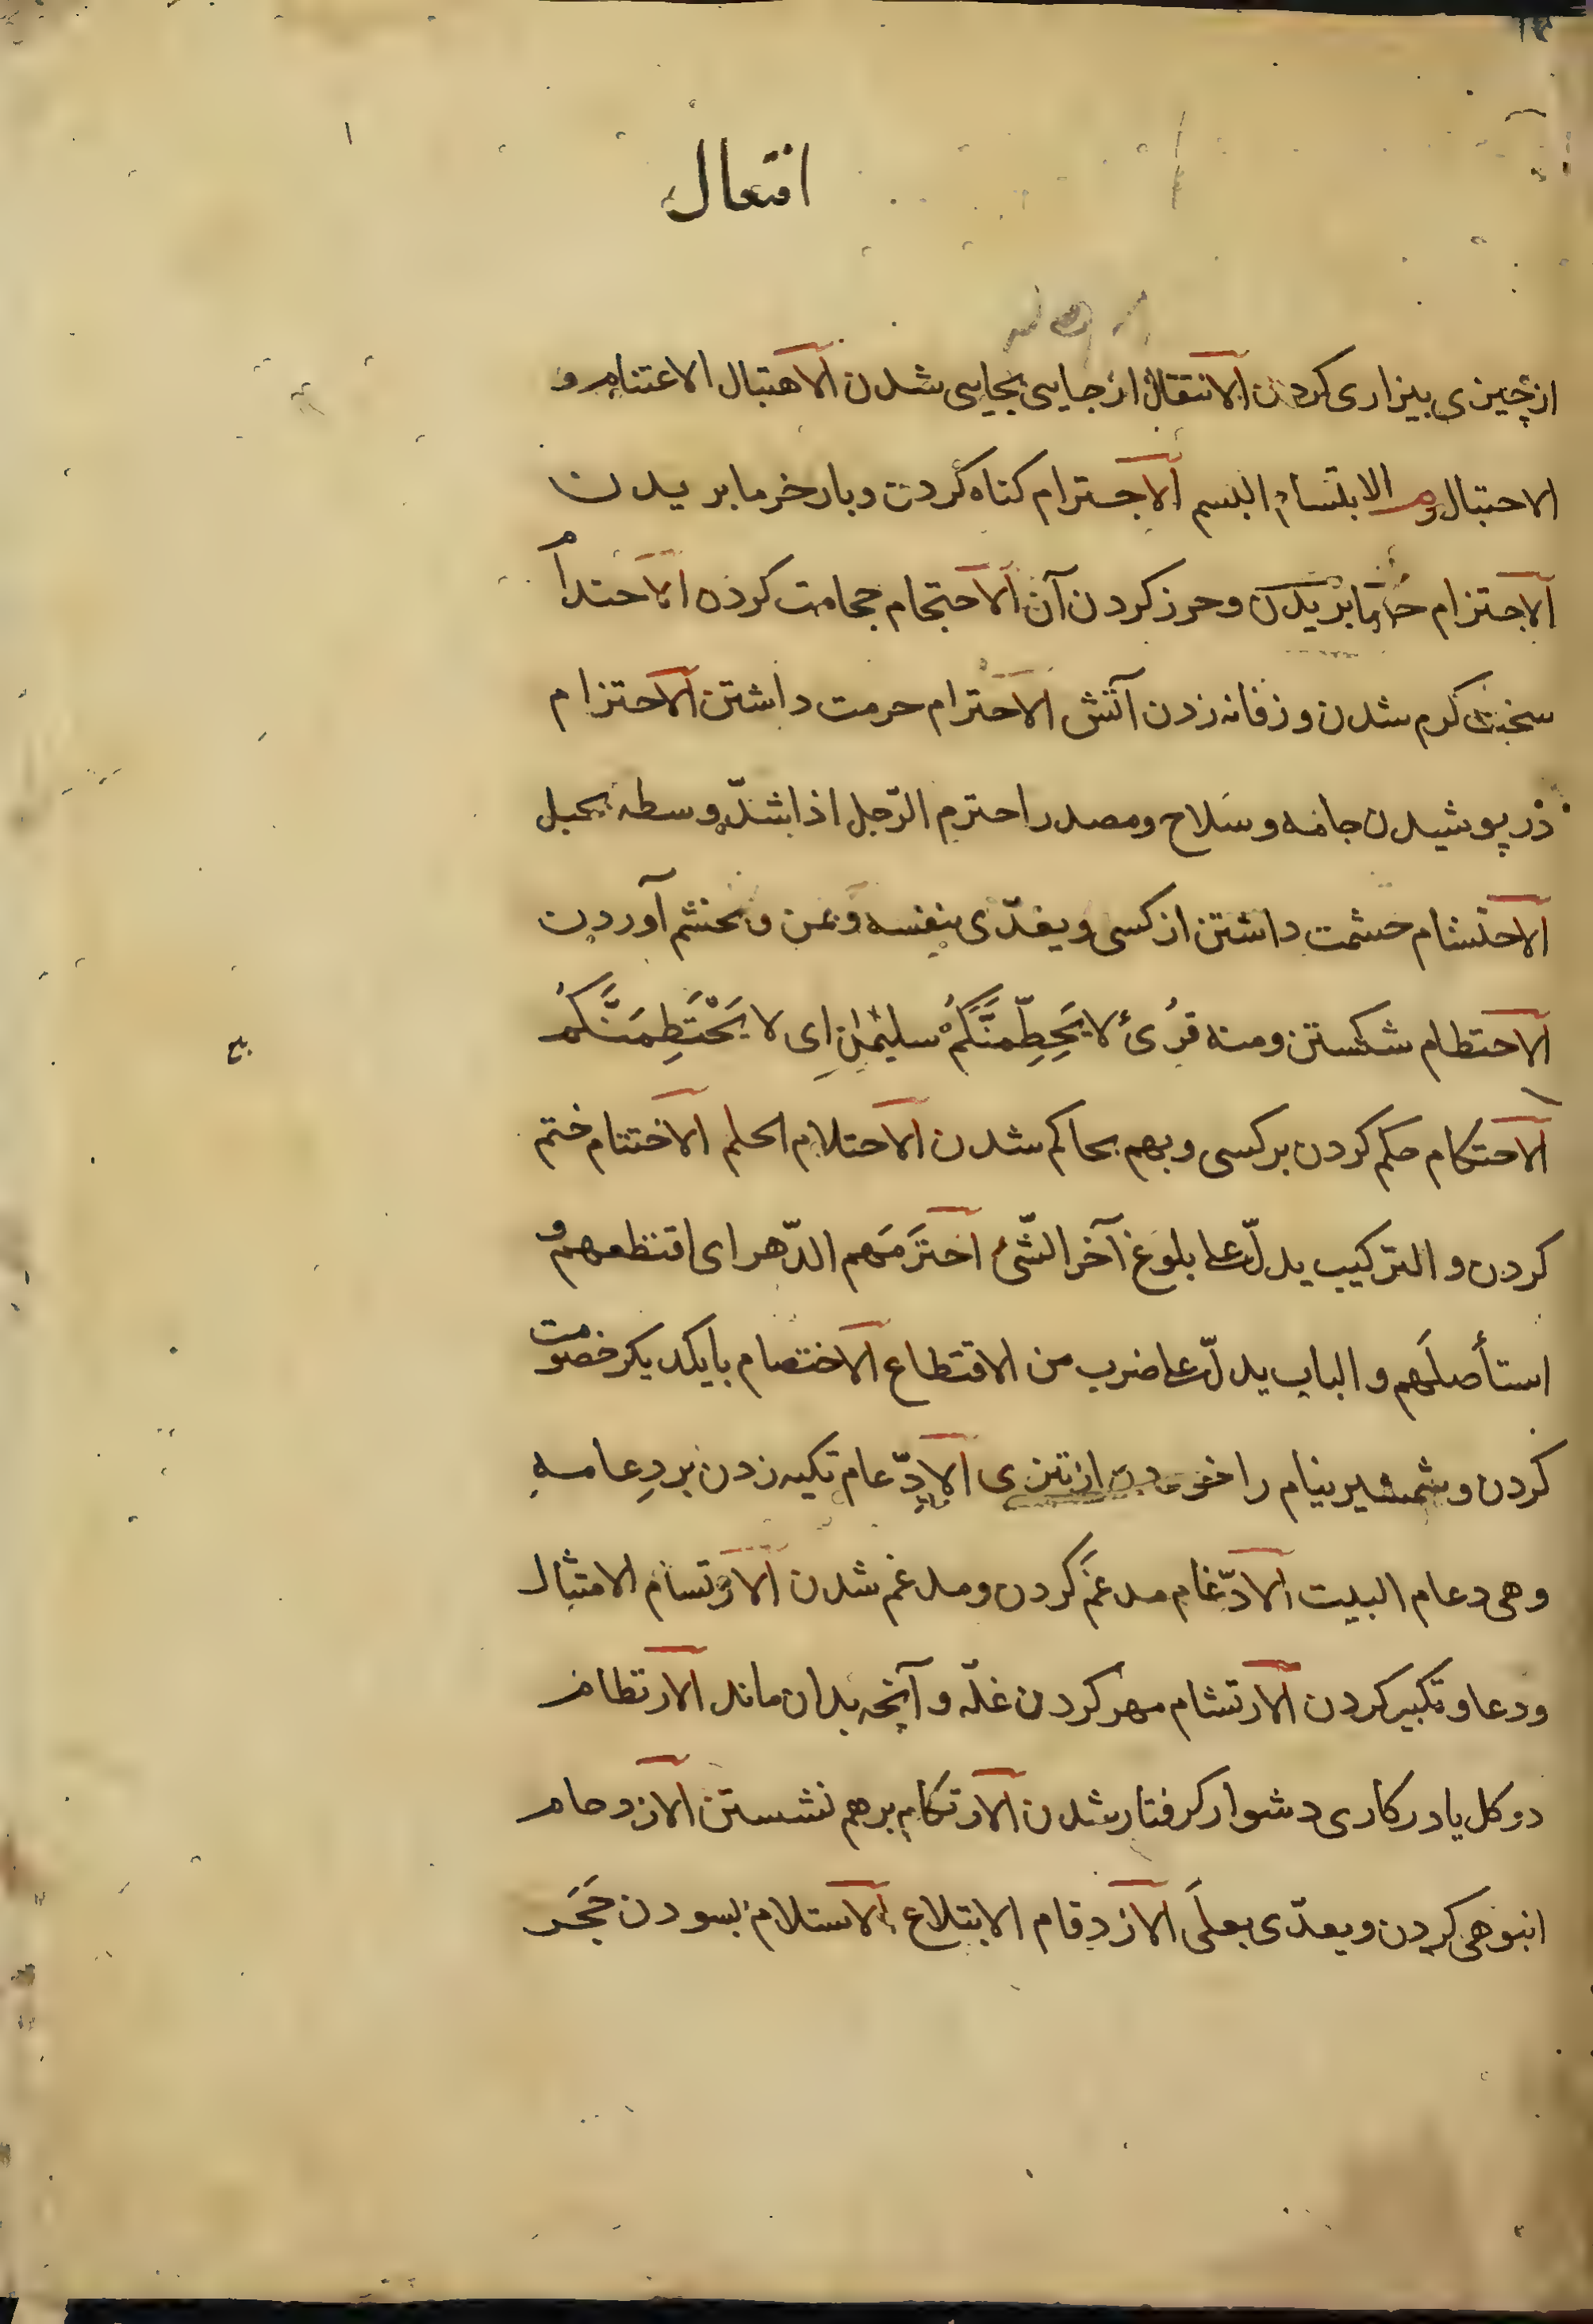 افتعال
از چیزی بیزاری کردن الانتقال از جایی بجایی شدن الاهتبال الاغتنام و
الاحتبال الابتسام التبسم الاجترام کناه کردن و بار خرما بریدن
الاجتزام خرما بریدن و حرز کردن آن الاحتجام حجامت کردن الاحتدام
سخت کرم شدن و زفانه زدن آتش الاحترام حرمت داشتن الاحتزام
در پوشیدن جامه و سلاح و مصدر احتزم الرّجل اذا شدّ وسطه بحبل
الاحتشام حشمت داشتن از کسی و یعدّی بنفسه و بمن و بخشم آوردن
الاحتطام شکستن ومنه قرئ لا يَحِطِّمَنَّكُمْ سليمان ای لا يَحْتَطِمَنَّكُمْ
الاحتکام حکم کردن بر کسی و بهم بحاکم شدن الاحتلام الحلم الاختتام ختم
کردن و الترکیب یدلّ علی بلوغ آخر الشّئ اخترَمَهم الدّهر ای اقتطعهم و
استأصلَهم و الباب یدلّ علی ضرب من الاقتطاع الاختصام بایکدیکر خصومت
کردن و شمشیر نیام را خوردن از تیزی الادّعام تکیه زدن بر دِعامه
وهی دعام البیت الادّغام مدغَم کردن و مدغم شدن الارتسام الامتثال
و دعا و تکبیر کردن الارتشام مهر کردن غلّه و آنچه بدان ماند الارتطام
در کل یا در کاری دشوار کرفتار شدن الارتکام برهم نشستن الازدحام
انبوهی کردن و یعدّی بعلَی الازدقام الابتلاع الاستلام بسودن حَجَر